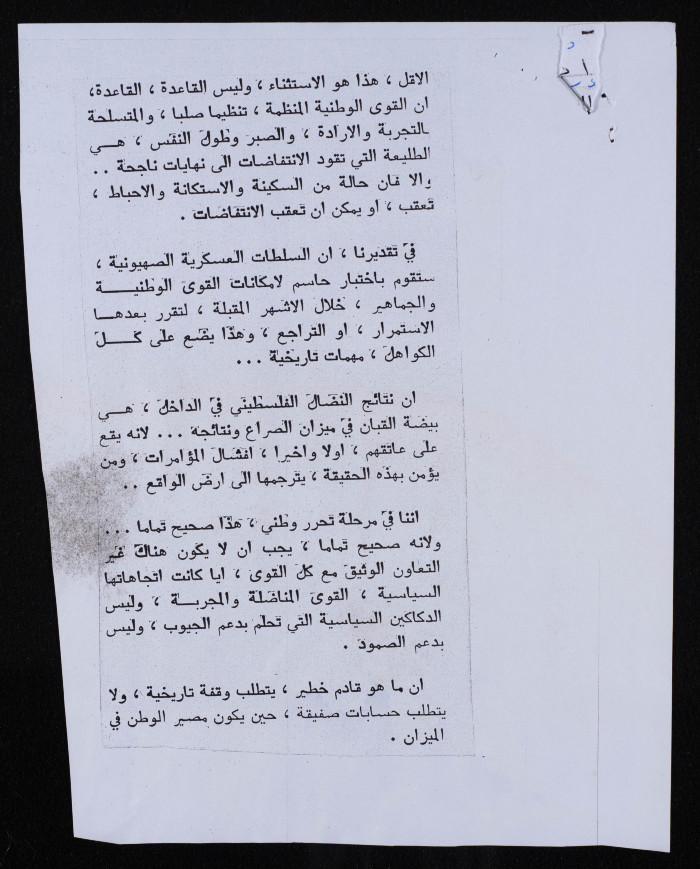 الاقل ، هذا هو الاستثناء ، وليس القاعدة ، القاعدة،
ان القوى الوطنية المنظمة ، تنظيما صلبا ، والمتسلحة
بالتجربة والارادة ، والصبر وطول النفس ، هــي
الطليعة التي تقود الانتفاضات الى نهايات ناجحة ..
والا فان حالة من السكينة والاستكانة والاحباط ،
تعقب ، او يمكن ان تعقب الانتفاضات .
في تقديرنا ، ان السلطات العسكرية الصهيونية ،
ستقوم باختبار حاسم لامكانات القوى الوطنيــــة
والجماهير ، خلال الاشهر المقبلة ، لتقرر بعدهــا
الاستمرار ، او التراجع ، وهذا يضع على كـــل
الكواهل ، مهمات تاريخية ...
ان نتائج النضال الفلسطيني في الداخل ، هــي
بيضة القبان في ميزان الصراع ونتائجه ... لانه يقع
على عاتقهم ، اولا واخيرا ، افشال المؤامرات ، ومن
يؤمن بهذه الحقيقة ، يترجمها الى ارض الواقع ..
اننا في مرحلة تحرر وطني ، هذا صحيح تماما ...
ولانه صحيح تماما ، يجب ان لا يكون هناك غير
التعاون الوثيق مع كل القوى ، ايا كانت اتجاهاتها
السياسية ، القوى المناضلة والمجربــة ، وليس
الدكاكين السياسية التي تحلم بدعم الجيوب ، وليس
بدعم الصمود .
ان ما هو قادم خطير ، يتطلب وقفة تاريخية ، ولا
يتطلب حسابات صفيقة ، حين يكون مصير الوطن في
الميزان .